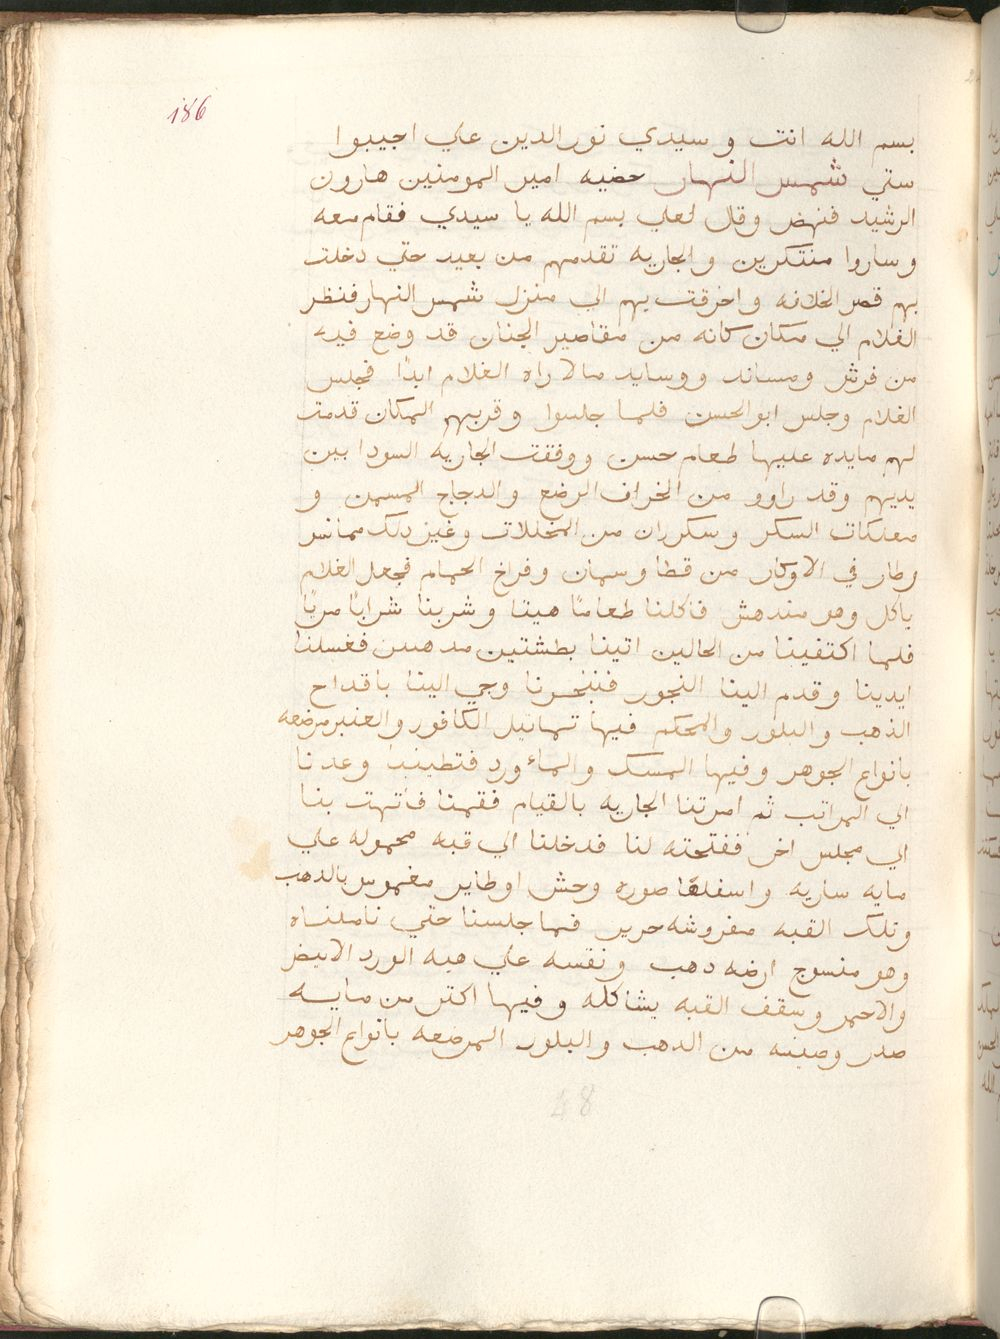 186
بسم الله انت و سيدي نور الدين علي اجيبوا
ستي شمس النهار حضيه امير المومنين هارون
الرشيد فنهض وقل لعلي بسم الله يا سيدي فقام معه
وساروا متنكرين والجاريه تقدمهم من بعيد حتي دخلت
بهم قصر الخلافه واخرقت بهم الي منزل شمس النهار فنظر
الغلام الي مكان كانه من مقاصير الجنان قد وضع فيه
من فرش ومساند ووسايد مالا راه الغلام ابدًا فجلس
الغلام وجلس ابو الحسن فلما جلسوا وقربهم المكان قدمت
لهم مايده عليها طعام حسن ووقفت الجاريه السودا بين
يديهم وقد راوو من الخراف الرضع والدجاج المسمن و
معلكات السكر وسكران من المخللات وغير دلك مما
وطار في الاوكار من قطا وسمان وفراخ الحمام فجعل الغلام
ياكل وهو مندهش فاكلنا طعامًا هينا وشربنا شرابًا مريًا
فلما اكتفينا من الحالين اتينا بطشتين مدهبين فغسلنا
ايدينا وقدم الينا البخور فتبخرنا وجي الينا باقداح
الذهب والبلور والمحكم فيها تماتيل الكافور والعنبر مرضعه
بانواع الجوهر وفيها المسك والماء ورد فتطيبنا وعدنا
الي المراتب ثم امرتنا الجاريه بالقيام فقمنا فاتهت بنا
الي مجلس اخر ففتحته لنا فدخلنا الي قبه محموله علي
مايه ساريه واسفلها صوره وحش او طاير مغموس بالدهب
وتلك القبه مفروشه حرير فما جلسنا حتي تاملناه
وهو منسوج ارضه دهب ونقسه علي هيه الورد الابيض
والاحمر وسقف القبه يشاكله وفيها اكتر من مايه
صدر وصينيه من الدهب والبلور المرضعه بانواع الجوهر
48